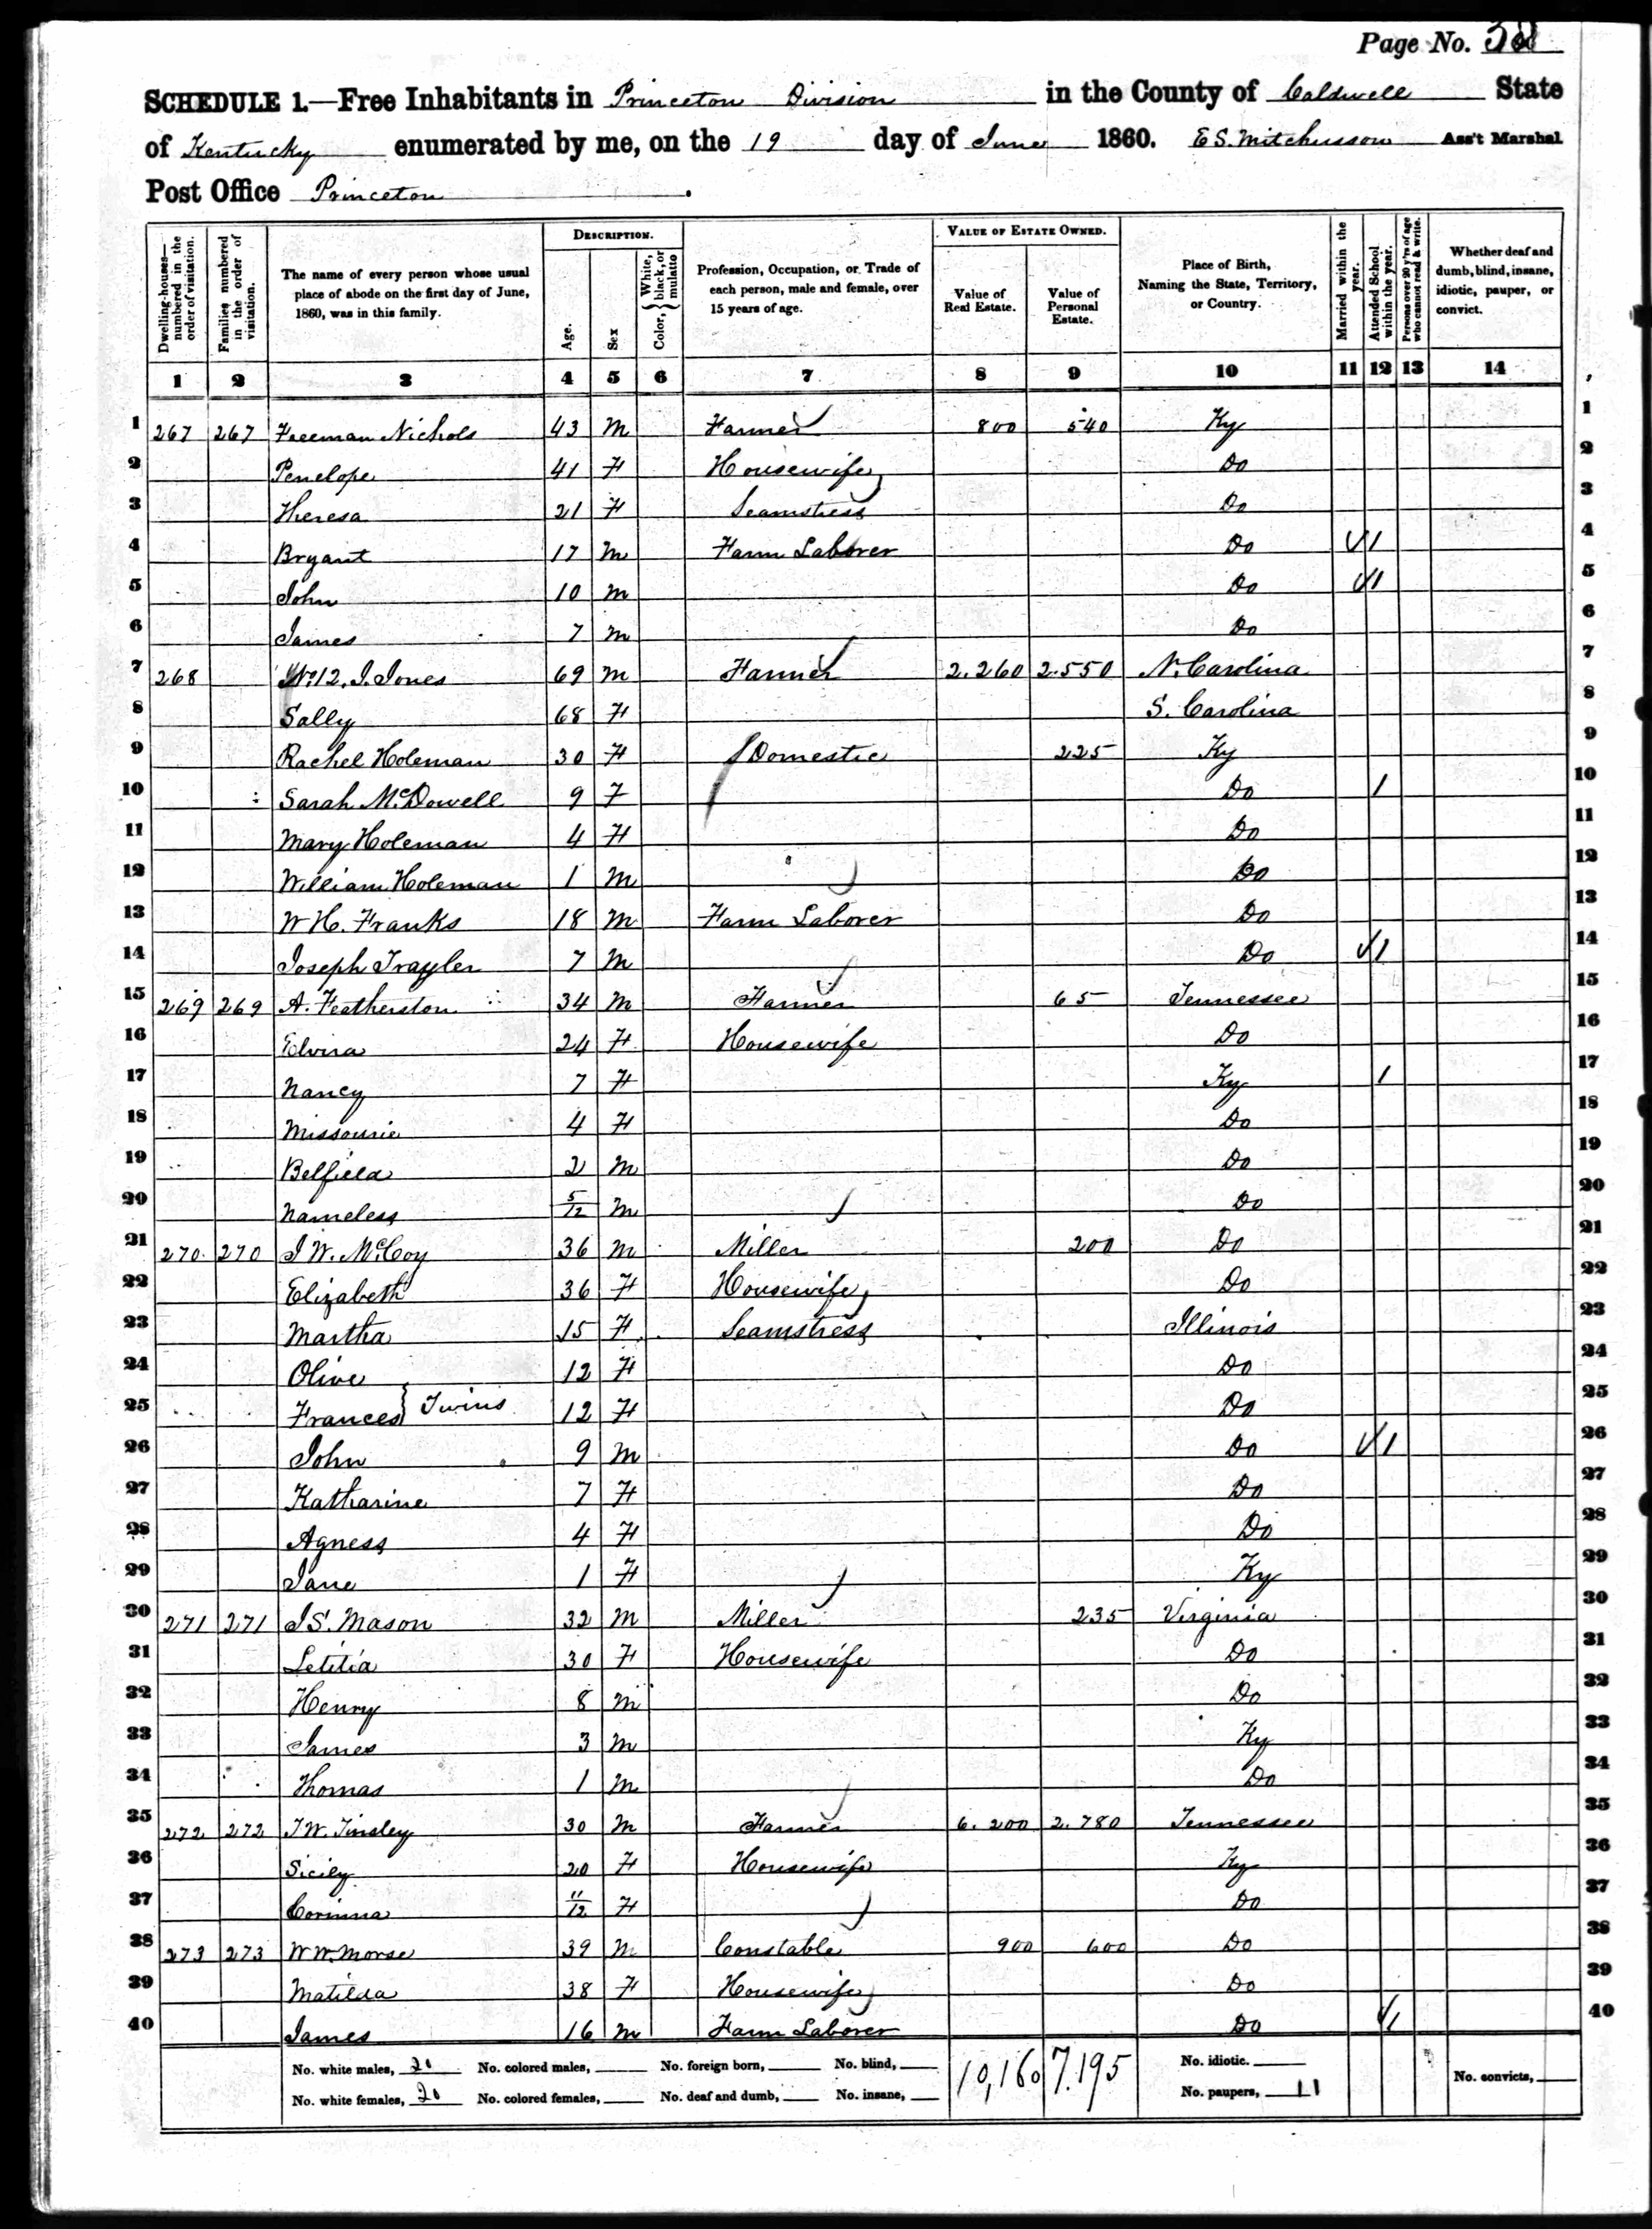 Page No. 38
SCHEDULE 1.—Free Inhabitants in Princeton Division in the County of Caldwell State
of Kentucky enumerated by me, on the 19 day of June 1860. E S. Mitchusson Ass't Marshal
Post Office Princeton.
Dwelling-houses—numbered in the order of visitation. Families numbered in the order of visitation. The name of every person whose usual place of abode on the first day of June, 1860, was in this family. DESCRIPTION. Age. Sex Color, { White, black, or mulatto Profession, Occupation, or Trade of each person, male and female, over 15 years of age. VALUE OF ESTATE OWNED. Value of Real Estate. Value of Personal Estate. Place of Birth, Naming the State, Territory, or Country. Married within the year. Attended School within the year. Persons over 20 y'rs of age who cannot read & write. Whether deaf and dumb, blind, insane, idiotic, pauper, or convict.
1 2 3 4 5 6 7 8 9 10 11 12 13 14
1 267 267 Freeman Nichols 43 M Farmer 800 540 Ky 1
2 Penelope 41 F Housewife Do 2
3 Theresa 21 F Seamstress Do 3
4 Bryant 17 M Farm Laborer Do √1 4
5 John 10 M Do √1 5
6 James 7 M Do 6
7 268 J. Jones 69 M Farmer 2.260 2.550 N. Carolina 7
8 Sally 68 F S. Carolina 8
9 Rachel Holeman 30 F Domestic 225 Ky 9
10 Sarah McDowell 9 F Do 1 10
11 Mary Holeman 4 F Do 11
12 William Holeman 1 M Do 12
13 W H. Franks 18 M Farm Laborer Do 13
14 Joseph Trayler 7 M Do √1 14
15 269 269 A. Featherston 34 M Farmer 65 Tennessee 15
16 Elvira 24 F Housewife Do 16
17 Nancy 7 F Ky 1 17
18 Missourie 4 F Do 18
19 Belfield 2 M Do 19
20 Nameless 5/12 M Do 20
21 270 270 J W. McCoy 36 M Miller 200 Do 21
22 Elizabeth 36 F Housewife Do 22
23 Martha 15 F Seamstress Illinois 23
24 Olive 12 F Do 24
25 Frances } Twins 12 F Do 25
26 John 9 M Do √1 26
27 Katharine 7 F Do 27
28 Agness 4 F Do 28
29 Jane 1 F Ky 29
30 271 271 J S. Mason 32 M Miller 235 Virginia 30
31 Letitia 30 F Housewife Do 31
32 Henry 8 M Do 32
33 James 3 M Ky 33
34 Thomas 1 M Do 34
35 272 272 J W. Tinsley 30 M Farmer 6.200 2.780 Tennessee 35
36 Sicily 20 F Housewife Ky 36
37 Corinna 11/12 F Do 37
38 273 273 W W. Morse 39 M Constable 900 600 Do 38
39 Matilda 38 F Housewife Do 39
40 James 16 M Farm Laborer Do √1 40
No. white males, 20 No. colored males, No. foreign born, No. blind, 10,160 7.195 No. idiotic.
No. white females, 20 No. colored females, No. deaf and dumb, No. insane, No. paupers, 11 No. convicts,